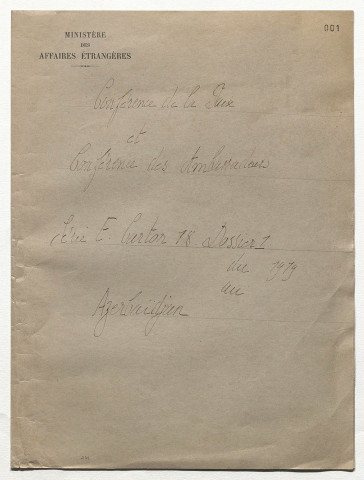 001
MINISTÈRE
DES
AFFAIRES ÉTRANGÈRES
Conférence de la Paix
et
Conférence des Ambassadeurs
Série E. Carton 18 Dossier 1
du 1919
au
Azerbaïdjan